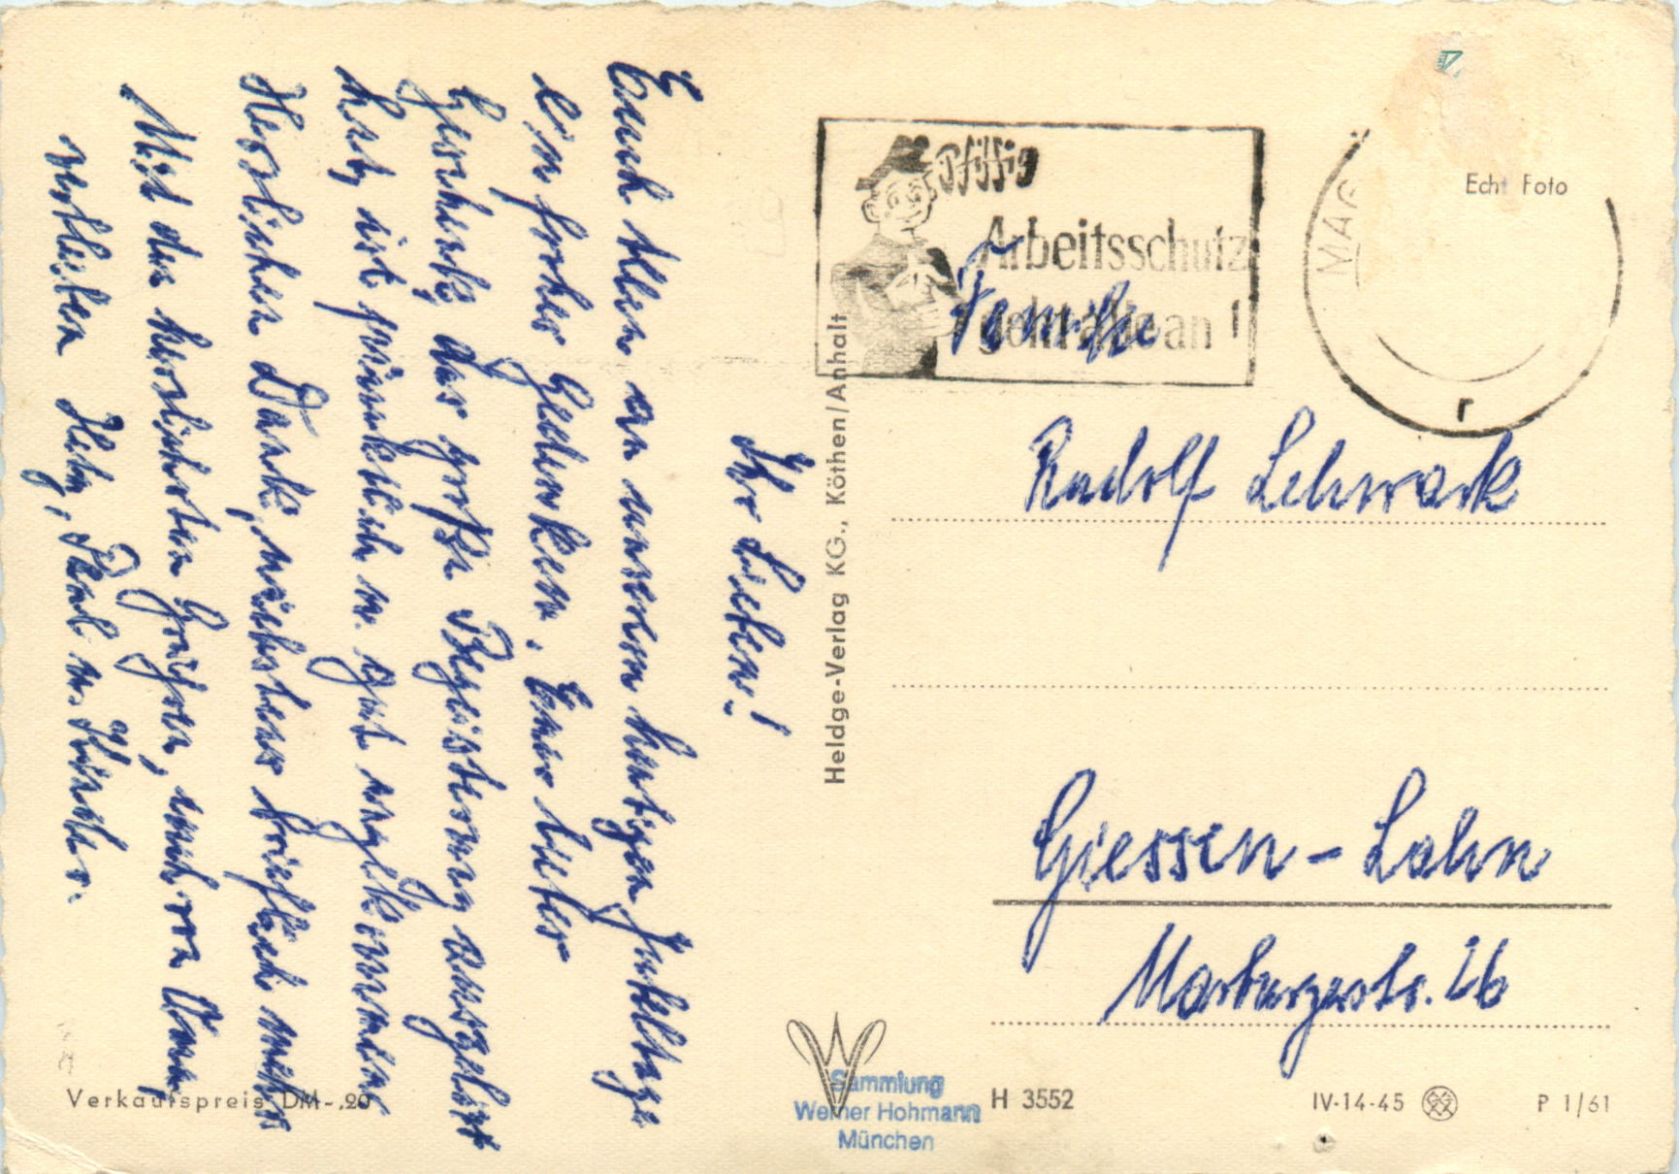 Ihr Lieben!
Euch Allen an unserem heutigen Jubeltage
ein frohes Gedenken. Euer liebes
Geschenk, das große Begeisterung ausgelöst
hat, ist pünktlich u. gut angekommen
Herzlichen Dank, nächstens brieflich mehr
Mit den herzlichsten Grüßen, auch von Oma,
verbleiben Hety, Paul u. Kinder.
Verkaufspreis DM-.20
Heldge-Verlag KG., Köthen/Anhalt
Sammlung
Werner Hohmann
München
Pfiffig
Arbeitsschutz
geht alle an!
MAG
r
Echt Foto
Familie
Rudolf Lehwark
Giessen-Lahn
Marburgerstr. 26
H 3552
IV-14-45
P 1/61